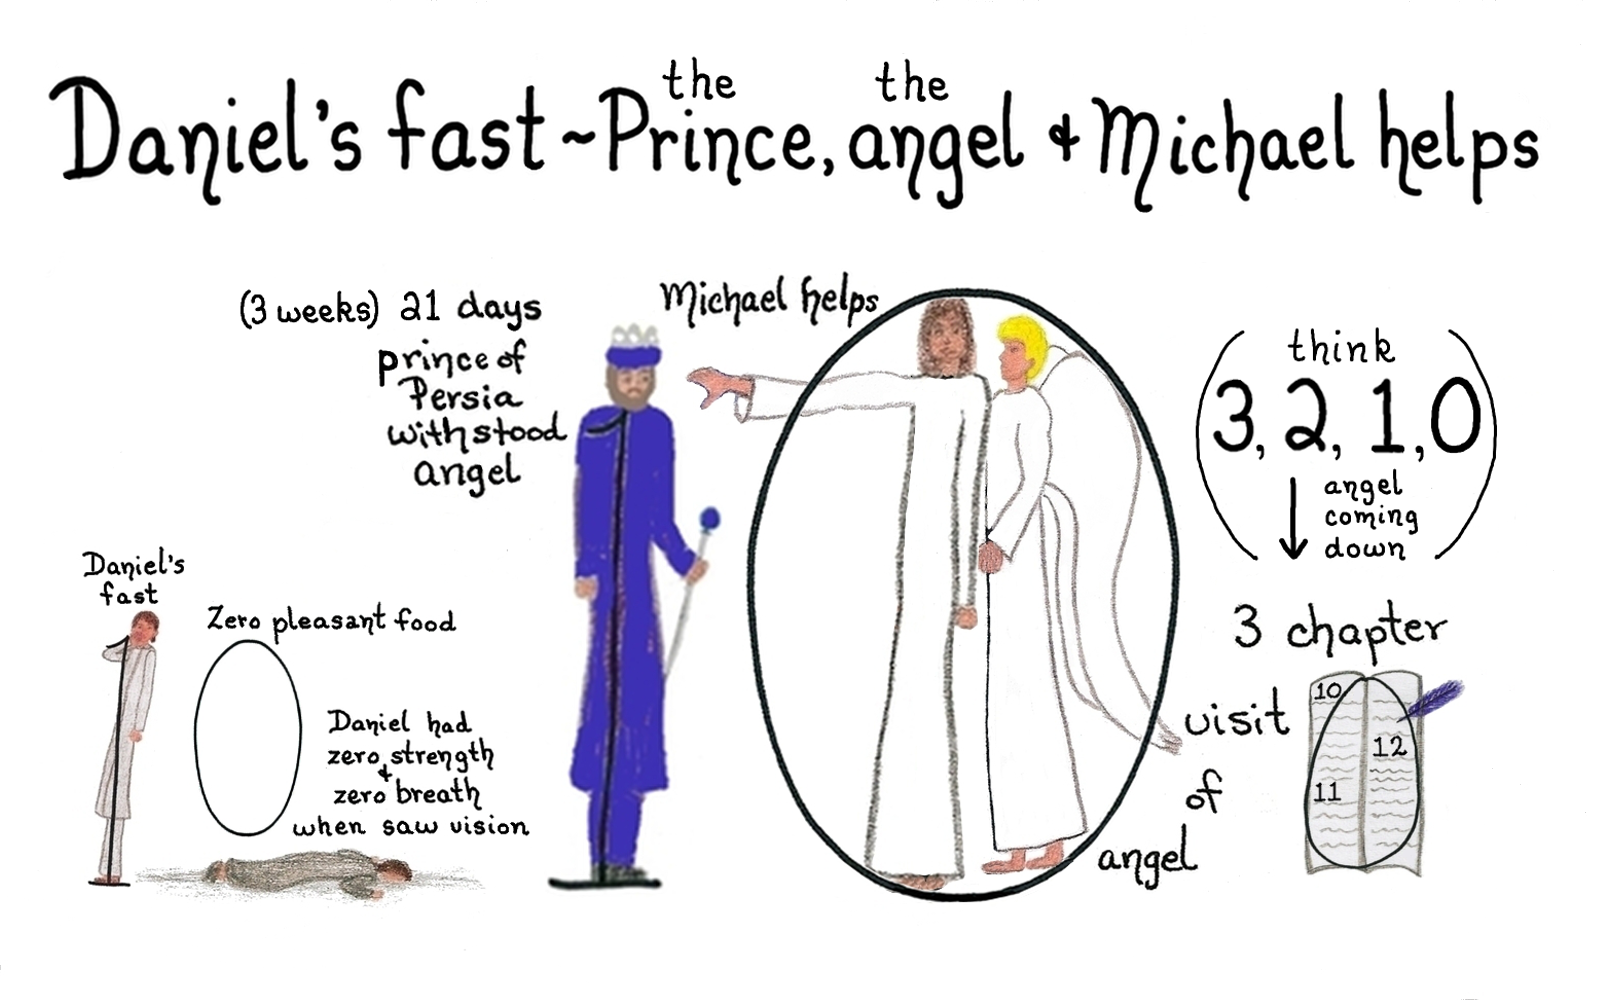 Daniel's fast ~ the Prince, the angel & Michael helps
(3 weeks) 21 days
prince of
Persia
withstood
angel
Michael helps
think
3, 2, 1, 0
angel
coming
down
Daniel's
fast
Zero pleasant food
Daniel had
zero strength
&
zero breath
when saw vision
3 chapter
visit
of
angel
10
12
11